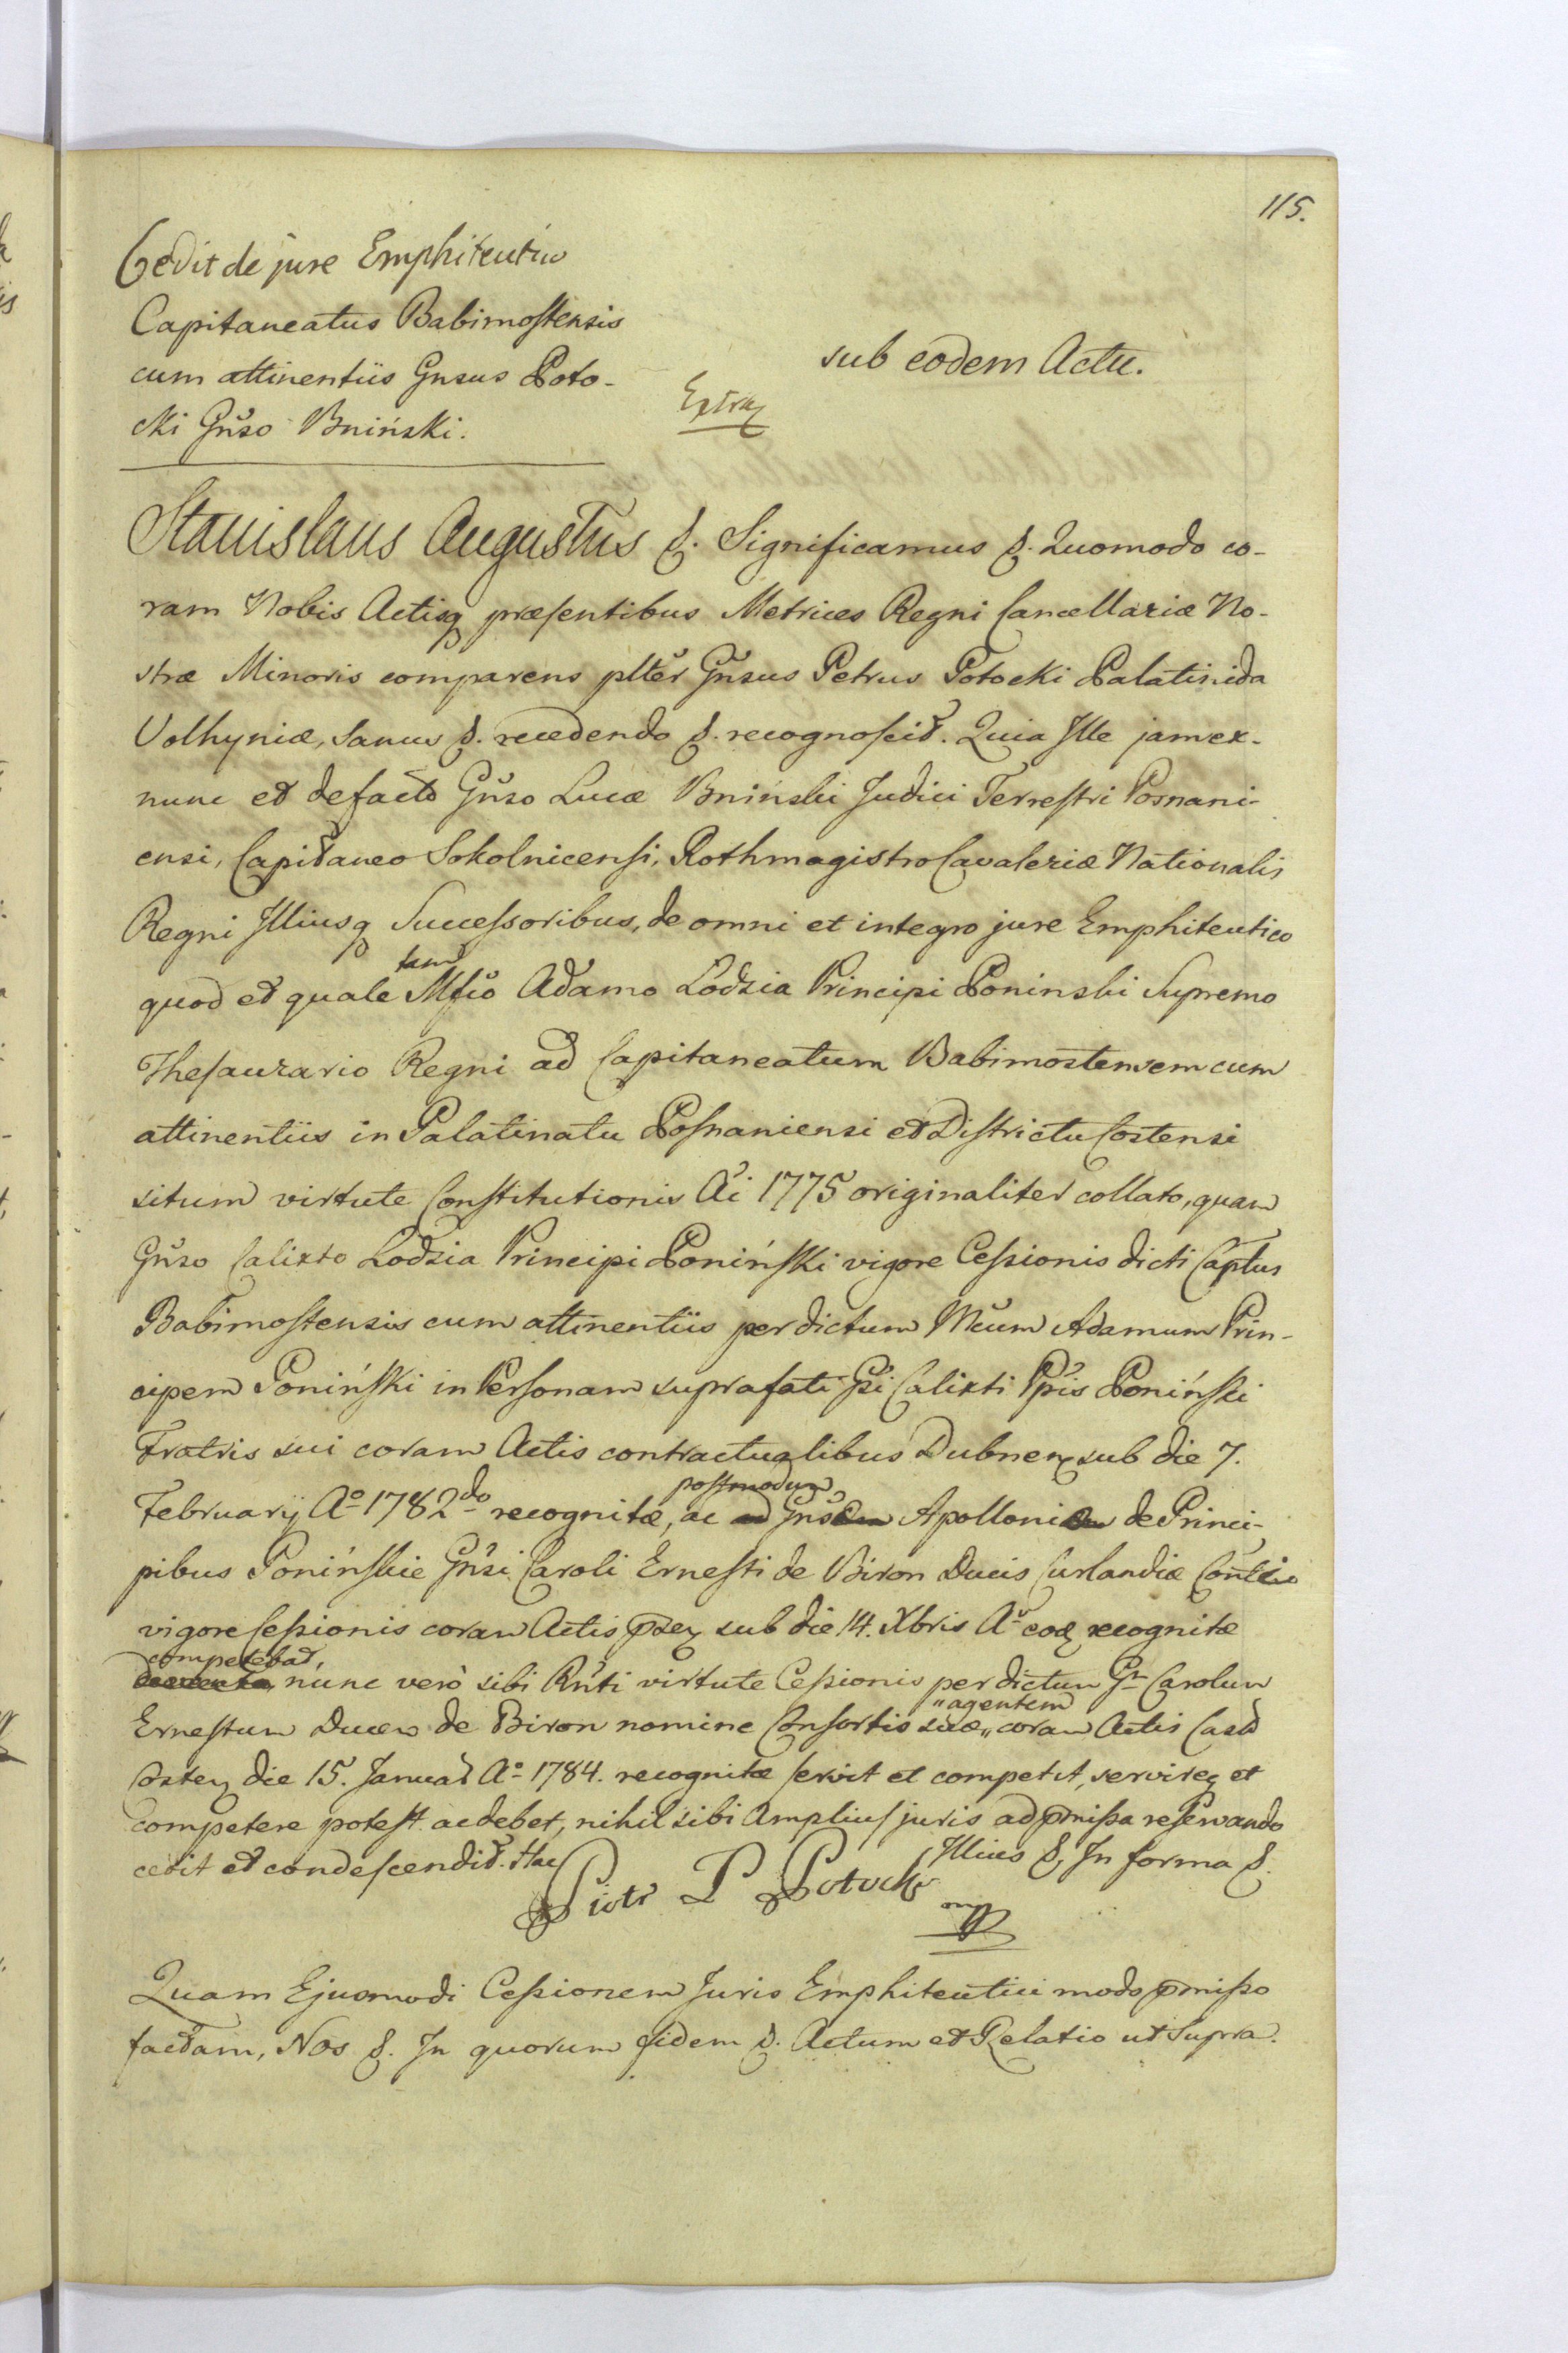 115.
Cedit de jure Emphiteutico
Capitaneatus Babimostensis
cum attinentiis Gnsus Poto-
cki Gnso Bniński.
sub eodem Actu.
Extrax
Stanislaus Augustus &. Significamus &. Quomodo co-
ram Nobis Actisq præsentibus Metrices Regni Cancellariæ No-
stræ Minoris comparens plter Gnsus Petrus Potocki Palatinida
Volhyniæ, sanus &. recedendo &. recognoscit. Quia Ille jam ex-
nunc et de facto Gnso Lucæ Bniński Judici Terrestri Posnani-
ensi, Capitaneo Sokolnicensi, Rothmagistro Cavaleriæ Nationalis
Regni Illiusq Successoribus, de omni et integro jure Emphiteutico
quod et quale tam Mfico Adamo Lodzia Principi Poninski Supremo
Thesaurario Regni ad Capitaneatum Babimostensem cum
attinentiis in Palatinatu Posnaniensi et Districtu Costensi
situm virtute Constitutionis Ai 1775 originaliter collato, quam
Gnso Calixto Lodzia Principi Poniński vigore Cessionis dicti Captus
Babimostensis cum attinentiis per dictum Mcum Adamum Prin-
cipem Poniński in Personam suprafati Gsi Calixti Ppis Poniński
Fratris sui coram Actis contractualibus Dubnen sub die 7.
February Ao 1782do recognitæ, ac postmodum Gnsæ Apolloniæ de Princi-
pibus Ponińskie Gnsi Caroli Ernesti de Biron Ducis Curlandiæ
vigore Cessionis coram Actis psen sub die 14. Xbris Ao eod recognitæ
competebat, nunc verò sibi Rnti virtute Cessionis per dictum Gn Carolum
Ernestum Ducem de Biron nomine Consortis suæ "agentem" coram Actis Cast
Costen die 15. Januar Ao 1784. recognitæ servit et competit, servireq et
competere potest ac debet, nihil sibi amplius juris ad pmissa reservando
cedit et condescendit. Hac Illius &. In forma &.
Piotr P Potocki
mpp
Quam Ejusmodi Cessionem Juris Emphiteutici modo pmisso
factam, Nos &. In quorum fidem &. Actum et Relatio ut Supra.